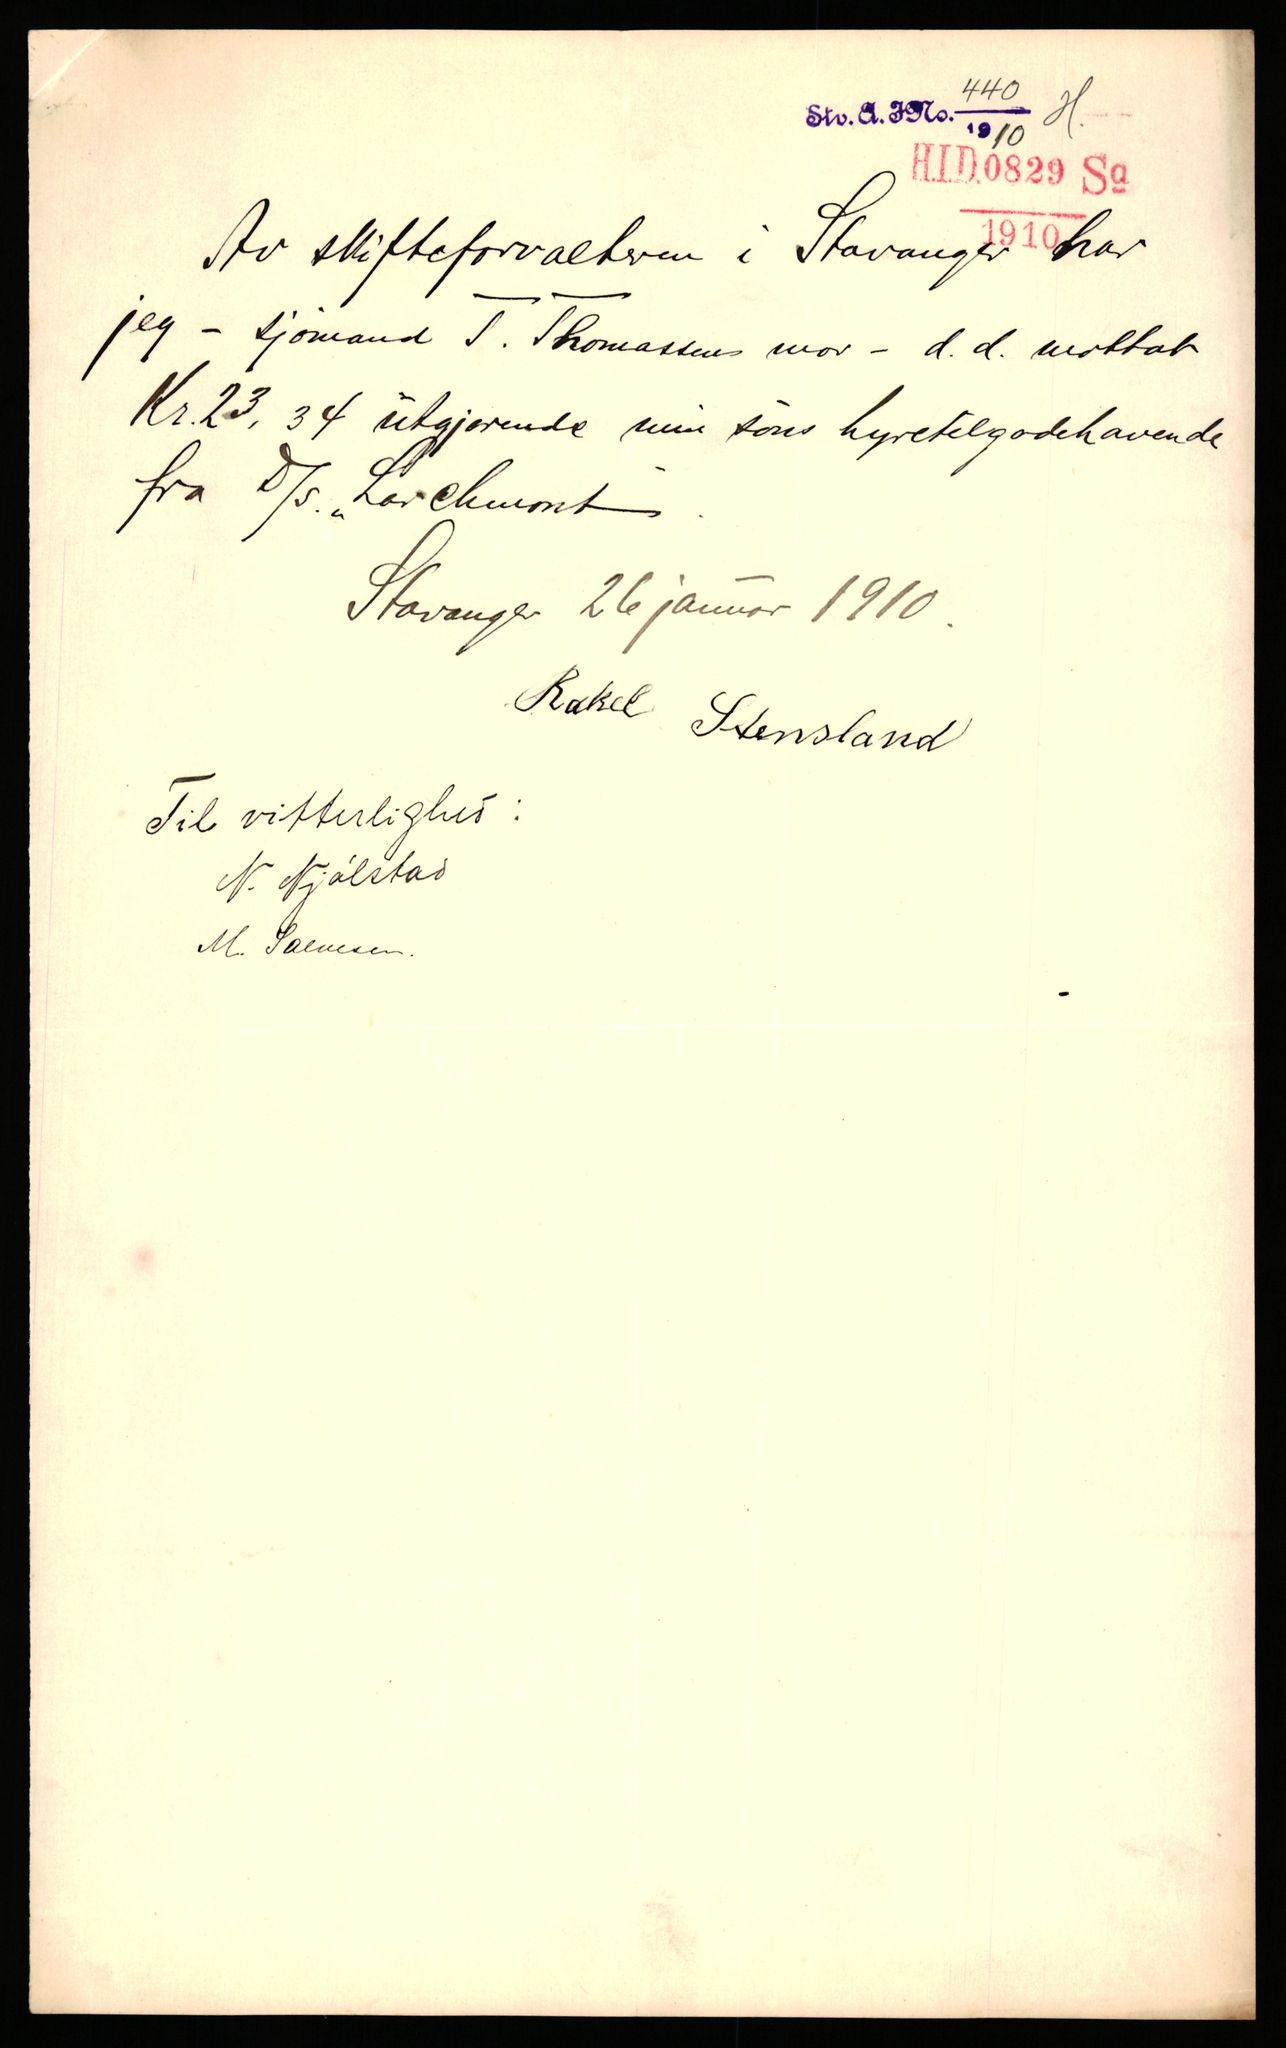 Stv. A. JNo. 440 H.
1910
H.I.D. 0829 Sa
1910
Av skifteforvalteren i Stavanger har
jeg – sjömand T. Thomassens mor – d.d. mottat
Kr. 23,34 utgjørende min söns hyretilgodehavende
fra D/S. „Larchmont".
Stavanger 26 januar 1910.
Rakel Stensland
Til vitterlighed:
N. Njålstad
M. Salvesen.